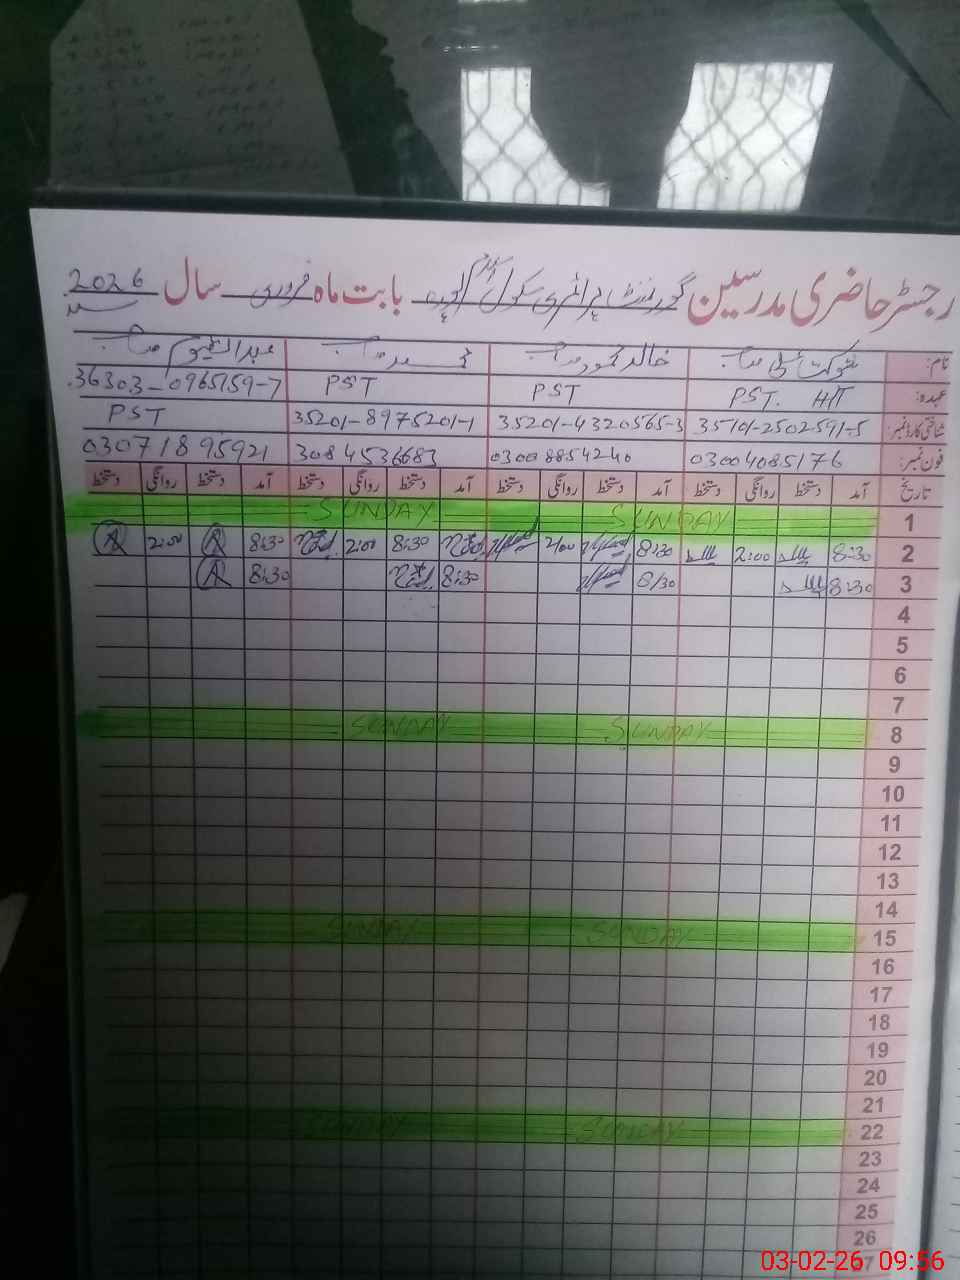 رجسٹر حاضری مدرسین گورنمنٹ پرائمری سکول بابت ماہ فروری سال 2026
نام: شوکت علی صاحب خالد محمود صاحب محمد صاحب عبدالقیوم صاحب
عہدہ: PST. H/T PST PST 36303-0965159-7
شناختی کارڈ نمبر: 35101-2502591-5 35201-4320565-3 35201-8975201-1 PST
فون نمبر: 03004085176 03008854240 3084536683 03071895921
تاریخ آمد دستخط روانگی دستخط آمد دستخط روانگی دستخط آمد دستخط روانگی دستخط آمد دستخط روانگی دستخط
1 SUNDAY SUNDAY
2 8:30 2:00 8:30 2:00 8:30 2:00 8:30 2:00
3 8:30 8/30 8:30 8:30
4
5
6
7
8 SUNDAY SUNDAY
9
10
11
12
13
14
15 SUNDAY SUNDAY
16
17
18
19
20
21
22 SUNDAY SUNDAY
23
24
25
26
27
03-02-26 09:56